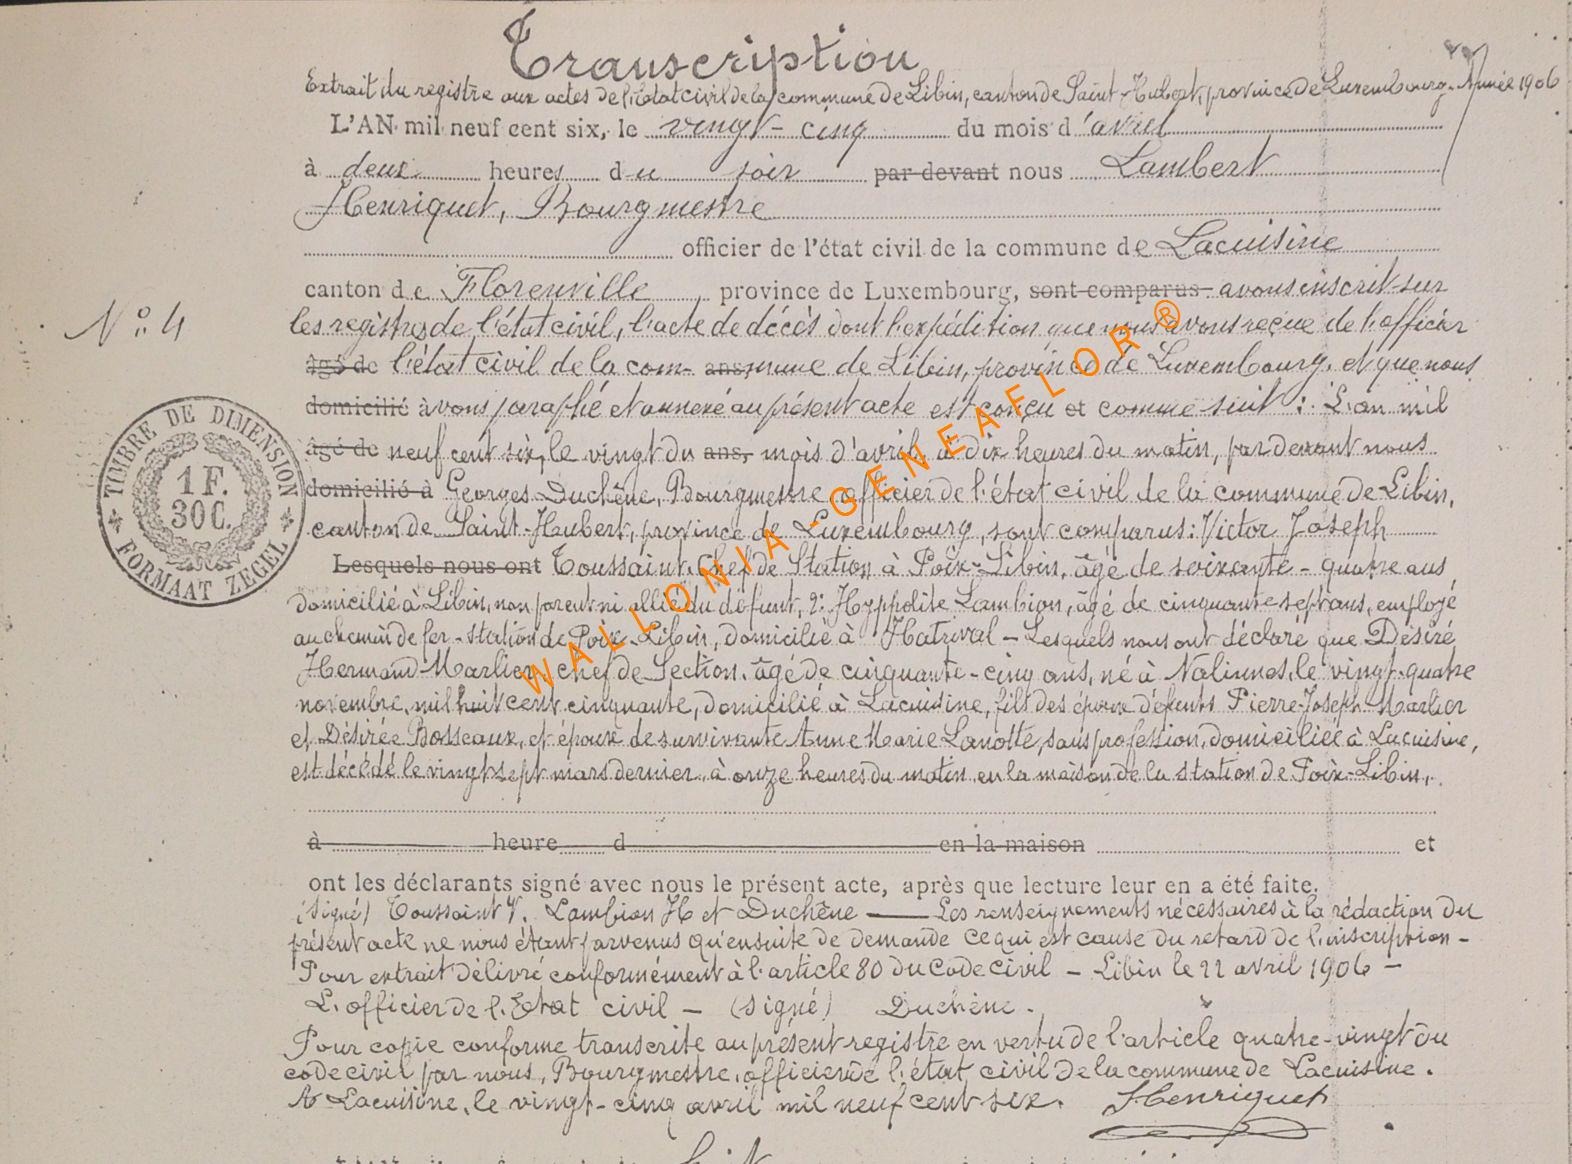 Transcription
Extrait du registre aux actes de l'Etat civil de la commune de Libin, canton de Saint-Hubert, province de Luxembourg. Année 1906
L'AN mil neuf cent six, le vingt-cinq du mois d'avril
à deux heures du soir par devant nous Lambert
Henriquet, Bourgmestre
officier de l'état civil de la commune de Lacuisine
canton de Florenville province de Luxembourg, sont comparus avons inscrit sur
N° 4
les registres de l'état civil, l'acte de décès dont l'expédition que nous avons reçue de l'officier
âgé de l'état civil de la com- ans, mune de Libin, province de Luxembourg, et que nous
domicilié à avons paraphé et annexé au présent acte est conçu et comme suit : L'an mil
âgé de neuf cent six, le vingt du ans, mois d'avril, à dix heures du matin, par devant nous
domicilié à Georges Duchêne, Bourgmestre, officier de l'état civil de la commune de Libin,
canton de Saint-Hubert, province de Luxembourg, sont comparus : Victor Joseph
Lesquels nous ont Toussaint, Chef de Station à Poix-Libin, âgé de soixante-quatre ans,
domicilié à Libin, non parent ni allié du défunt, 2° Hyppolite Lambion, âgé de cinquante sept ans, employé
au chemin de fer - station de Poix-Libin, domicilié à Hatrival - Lesquels nous ont déclaré que Désiré
Hermand Marlier, chef de Section, âgé de cinquante-cinq ans, né à Nalinnes, le vingt-quatre
novembre, mil huit cent cinquante, domicilié à Lacuisine, fils des époux défunts Pierre-Joseph Marlier
et Désirée Bosseaux, et époux de survivante Anne Marie Lanotte, sans profession, domiciliée à Lacuisine,
est décédé le vingt sept mars dernier, à onze heures du matin, en la maison de la station de Poix-Libin,
à heure d en la maison et
ont les déclarants signé avec nous le présent acte, après que lecture leur en a été faite.
(signé) Toussaint V. Lambion H et Duchêne — Les renseignements nécessaires à la rédaction du
présent acte ne nous étant parvenus qu'ensuite de demande ce qui est cause du retard de l'inscription -
Pour extrait délivré conformément à l'article 80 du Code civil - Libin le 22 avril 1906 -
L'officier de l'Etat civil - (signé) Duchêne.
Pour copie conforme transcrite au présent registre en vertu de l'article quatre-vingt du
code civil par nous, Bourgmestre, officier de l'état civil de la commune de Lacuisine.
A Lacuisine, le vingt-cinq avril mil neuf cent six. Henriquet
TIMBRE DE DIMENSION
1 F.
30 C.
FORMAAT ZEGEL
WALLONIA - GENEAFLOR ®